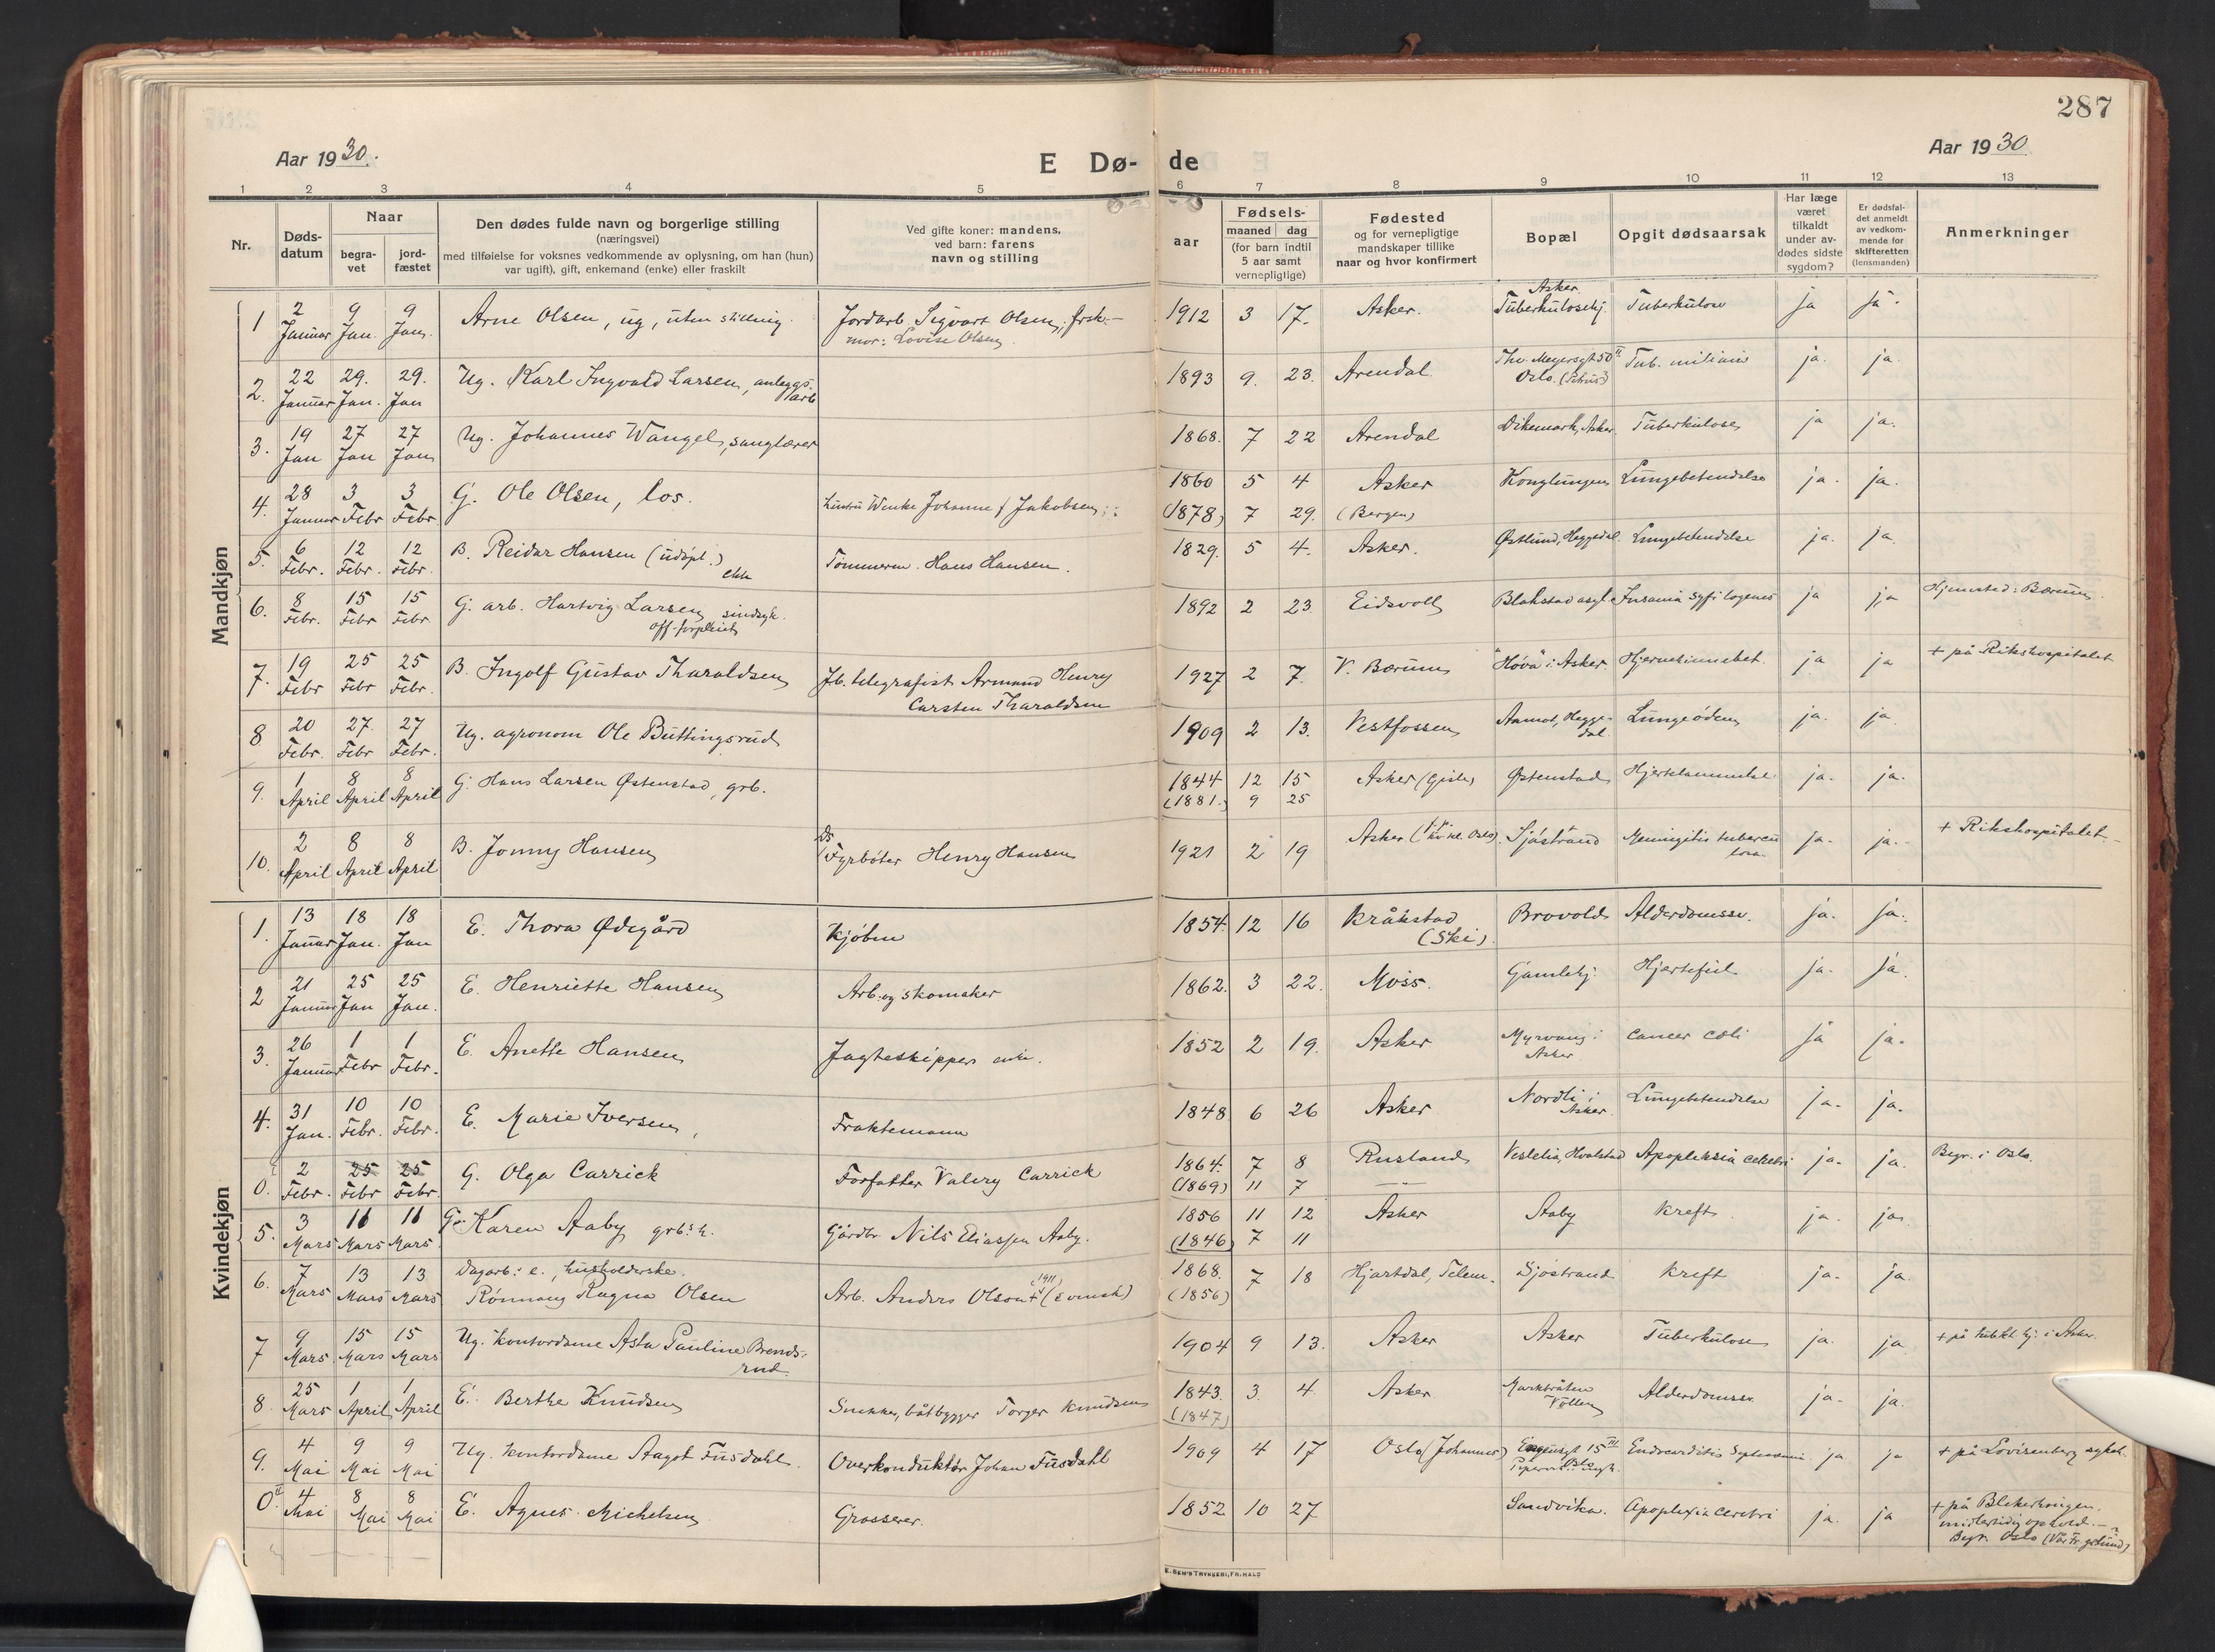 287
Aar 1930.
E Dø-
de
Aar 1930
1 2 3 4 5 6 7 8 9 10 11 12 13
Nr.
Døds-
datum
Naar
begra-
vet
jord-
fæstet
Den dødes fulde navn og borgerlige stilling
(næringsvei)
med tilføielse for voksnes vedkommende av oplysning, om han (hun)
var ugift), gift, enkemand (enke) eller fraskilt
Ved gifte koner: mandens,
ved barn: farens
navn og stilling
aar
Fødsels-
maaned dag
(for barn indtil
5 aar samt
vernepligtige)
Fødested
og for vernepligtige
mandskaper tillike
naar og hvor konfirmert
Bopæl
Opgit dødsaarsak
Har læge
været
tilkaldt
under av-
dødes sidste
sygdom?
Er dødsfal-
det anmeldt
av vedkom-
mende for
skifteretten
(lensmanden)
Anmerkninger
Mandkjøn
1 2 Januar 9 Jan. 9 Jan. Arne Olsen, ug, uten stilling. Jordarb. Sigvart Olsen, frsk.- 1912 3 17. Asker. Asker Tuberkulosehj. Tuberkulose ja ja.
mor: Lovise Olsen.
2. 22 Januar 29. Jan. 29. Jan Ug. Karl Ingvald Larsen, anleggs- 1893 9. 23. Arendal Thv. Meyersgt 50 II Tub. miliaris ja. ja.
arb Oslo.
3. 19 Jan 27 Jan 27 Jan Ug. Johannes Wangel, sanglærer 1868. 7 22 Arendal Dikemark, Asker. Tuberkulose ja ja.
4. 28 Januar 3 Febr 3 Febr G. Ole Olsen, los. hustru Wenke Johanne f Jakobsen 1860 5 4 Asker Konglungen Lungebetendelse ja. ja.
(1878) 7 29. (Bergen)
5. 6 Febr. 12 Febr. 12 Febr. B. Reidar Hansen (udøpt.) Tømmerm. Hans Hansen. 1829. 5 4. Asker. Østlund, Heggedal. Lungebetendelse ja. ja.
ekte
6. 8 Febr. 15 Febr 15 Febr G. arb. Hartvig Larsen sindsyk. 1892 2 23. Eidsvoll Blakstad asyl Insania syfilogenes ja ja Hjemsted: Bærum.
off-forpleiet
7. 19 Febr 25 Febr 25 Febr. B. Ingolf Gustav Tharaldsen Jb. telegrafist Armand Henry 1927 2 7. V. Bærum "Høva" i Asker Hjernehinnebet. ja ja + på Rikshospitalet
Carsten Tharaldsen
8 20 Febr. 27. Febr 27 Febr. Ug. agronom Ole Buttingsrud 1909 2 13. Vestfossen Aamot, Hegge- Lungeødem ja. ja
dal
9. 1 April 8 April 8 April G. Hans Larsen Østenstad, grb. 1844 12 15 Asker Østenstad Hjertelammelse ja. ja.
(1881.) 9 25
10. 2 April 8 April 8 April B. Jonny Hansen Fyrbøter Henry Hansen 1921 2 19 Asker Sjøstrand Meningitis tubercu ja. ja. + Rikshospitalet
losa
Kvindekjøn
1. 13 Januar 18 Jan. 18 Jan E. Thora Ødegård Kjøbm 1854. 12 16 Kråkstad Brovold Alderdomssv. ja. ja.
(Ski).
2 21 Januar 25 Jan 25 Jan. E. Henriette Hansen Arb. og skomaker 1862. 3 22. Moss. Gamlehj. Hjertefeil ja. ja.
3. 26 Januar 1 Febr 1 Febr. E. Anette Hansen Jagteskippers enke. 1852 2 19. Asker Myrvang i cancer coli ja ja.
Asker
4. 31 Jan. 10 Febr. 10 Febr. E. Marie Iversen, Fraktemann 1848 6 26 Asker Nordli i Lungebetendelse ja. ja.
Asker.
0. 2 Febr. 25 Febr 25 Febr. G. Olga Carrick Forfatter Valery Carrick 1864. 7 8 Rusland Vestelia, Hvalstad Apopleksia cerebri ja. ja. Begr. i Oslo.
(1869) 11 7
5. 3 Mars 11 Mars 11 Mars. G. Karen Aaby grb.h. Gårdbr Nils Eliassen Aaby. 1856 11 12 Asker Aaby Kreft. ja. ja.
(1846) 7 11
6. 7 Mars 13 Mars 13 Mars Dagarb: e., husholderske. 1868. 7 18 Hjartdal, Telem. Sjøstrand kreft ja. ja.
Rønnaug Ragna Olsen Arb. Anders Olson + (1911) (svensk) (1856)
7 9 Mars 15 Mars 15 Mars Ug. kontordame Asta Pauline Brends- 1904 9 13. Asker Asker Tuberkulose ja. ja. + på tubkl hj. i Asker.
rud
8 25 Mars 1 April 1 April E. Berthe Knudsen Snekker, båtbygger Torger Knudsen 1843. 3. 4. Asker Alderdomssv. ja. ja.
(1847) Vollen
9. 4 Mai 9 Mai 9 Mai Ug. kontordame Aagot Fusdahl. Overkonduktør Johan Fusdahl 1909 4 17 Oslo (Johannes) 15 III Endocarditis ja. ja + på Lovisenberg sykeh.
0 4 Mai 8 Mai 8 Mai E. Agnes Michelsen Grosserer. 1852 10 27 Sandvika. Apoplexia cerebri ja. ja + på Blekerhaugen.
midlertidig ophold.
Begr. Oslo (Vår Fr. grlund)
E. SEM'S TRYKKERI, FR.HALD